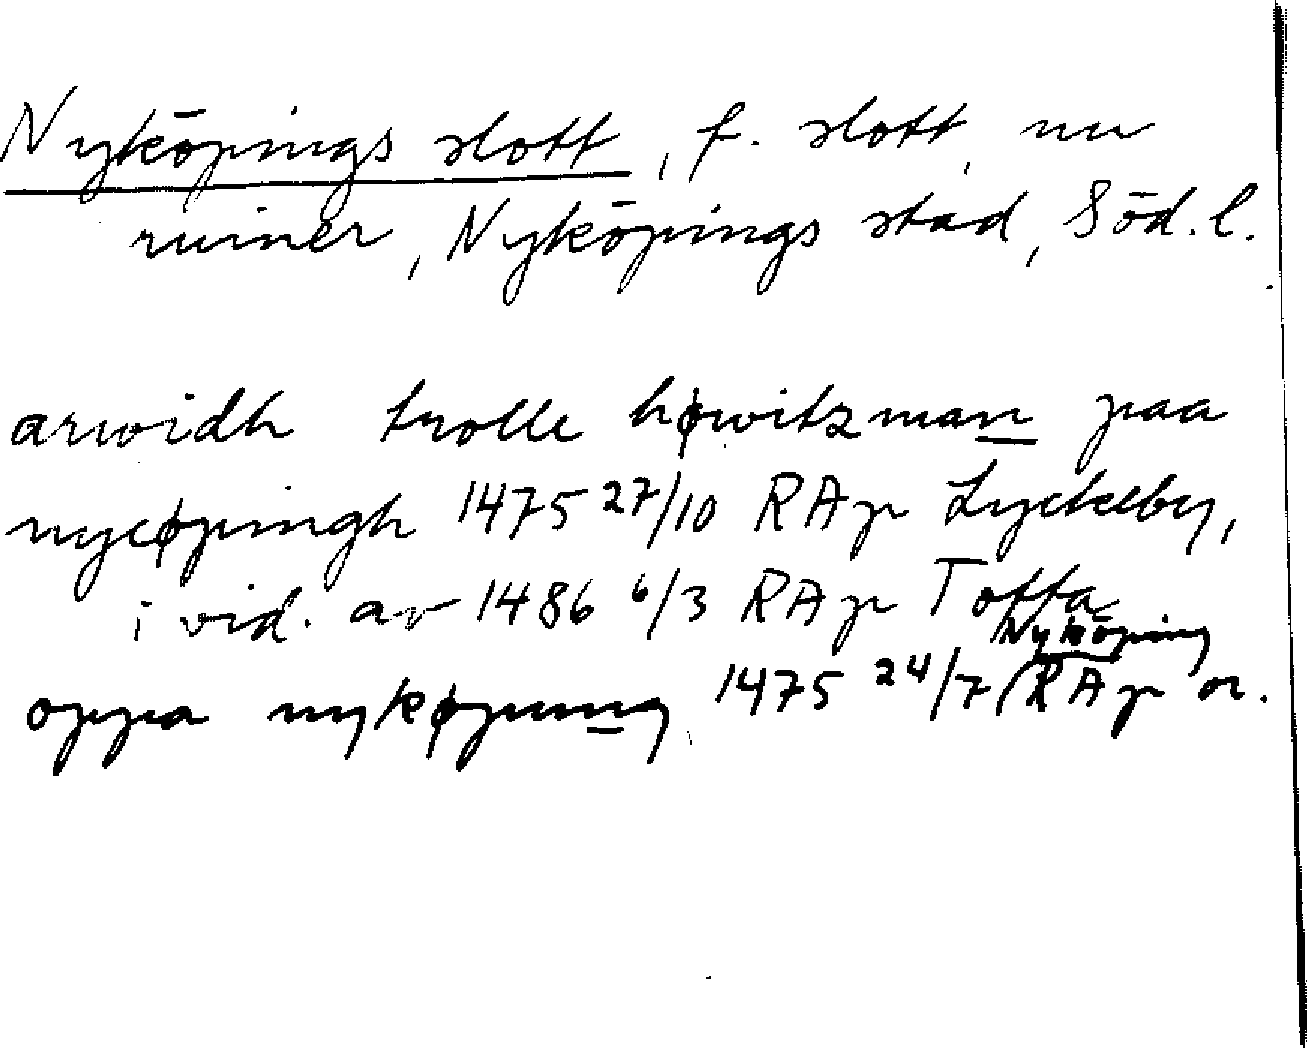 Nyköpings slott, f. slott, nu
ruiner, Nyköpings stad, Söd. l.
arwidh trolle høwitzman paa
nycøpingh 1475 27/10 RAp Lyckeby,
i vid. av 1486 6/3 RAp Tofta
Nyköping
oppa nykøpung 1475 24/7 RAp or.